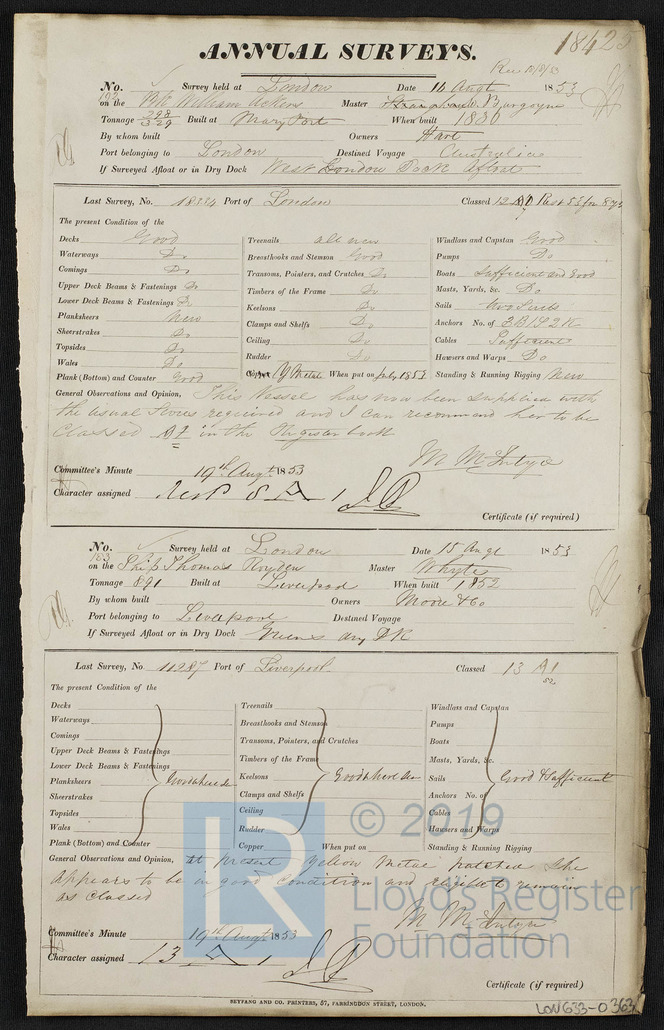 18425
ANNUAL SURVEYS.
No. Survey held at London Date 16 Augt 1853
on the Bk William Ackers Master
Tonnage 298 329 Built at Mary Port When built 1836
By whom built Owners Hart
Port belonging to London Destined Voyage Australia
If Surveyed Afloat or in Dry Dock West London Dock Afloat
Last Survey, No. 18334 Port of London Classed 12 A1
The present Condition of the
Decks Good Treenails all new Windlass and Capstan Good
Waterways Do Breasthooks and Stemson Good Pumps Do
Comings Do Transoms, Pointers, and Crutches Do Boats Sufficient and Good
Upper Deck Beams & Fastenings Do Timbers of the Frame Do Masts, Yards, &c. Do
Lower Deck Beams & Fastenings Do Keelsons Do Sails Two Suits
Planksheers New Clamps and Shelfs Do Anchors No. of 3B 1S 2K
Sheerstrakes Do Ceiling Do Cables Sufficient
Topsides Do Rudder Do Hawsers and Warps Do
Wales Do Copper Y Metal When put on July 1853 Standing & Running Rigging New
Plank (Bottom) and Counter Good
General Observations and Opinion, This Vessel has now been supplied with
the usual Stores required and I can recommend her to be
Classed in the Register book
M McIntyre
Committee's Minute 19th Augt 1853
Character assigned
Certificate (if required)
No. Survey held at London Date 15 Augt 1853
on the Ship Thomas Royden Master Whyte
Tonnage 891 Built at Liverpool When built 1852
By whom built Owners Moore & Co
Port belonging to Liverpool Destined Voyage
If Surveyed Afloat or in Dry Dock Greens dry Dk
Last Survey, No 11287 Port of Liverpool Classed 13 A1
52
The present Condition of the
Decks Treenails Windlass and Capstan
Waterways Breasthooks and Stemson Pumps
Comings Transoms, Pointers, and Crutches Boats
Upper Deck Beams & Fastenings Timbers of the Frame Masts, Yards, &c.
Lower Deck Beams & Fastenings
Planksheers Good where seen Keelsons Good where seen Sails Good & Sufficient
Sheerstrakes Clamps and Shelfs Anchors No. of
Topsides Ceiling Cables
Wales Rudder Hawsers and Warps
Plank (Bottom) and Counter Copper When put on Standing & Running Rigging
General Observations and Opinion, At present Yellow Metal patched She
Appears to be in good condition and Eligible to remain
as Classed
M McIntyre
Committee's Minute 19th Augt 1853
Character assigned 13 A 1
Certificate (if required)
BEYFANG AND CO. PRINTERS, 57, FARRINGDON STREET, LONDON.
LON633-0363
LR
© 2019
Lloyd's Register
Foundation